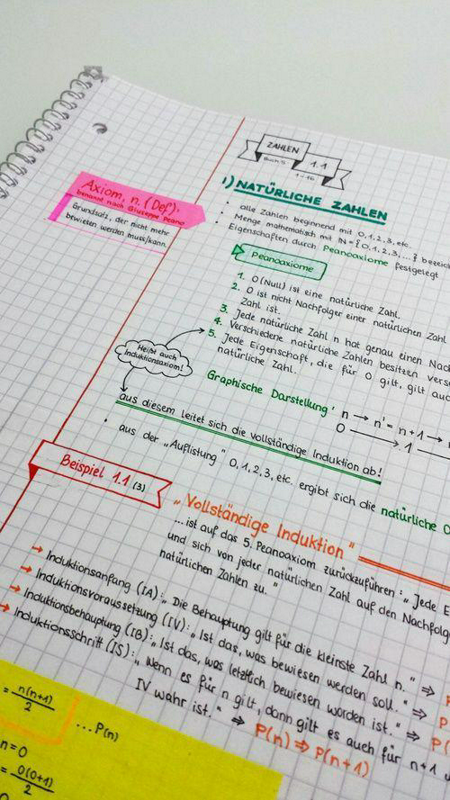 ZAHLEN
1.1
Axiom, n. (Def).
benannt nach Giuseppe Peano
Grundsatz, der nicht mehr
bewiesen werden muss/kann.
1) NATÜRLICHE ZAHLEN
• alle Zahlen beginnend mit 0,1,2,3, etc.
• Menge mathematisch mit ℕ = {0,1,2,3,...}
• Eigenschaften durch Peanoaxiome festgelegt
Peanoaxiome
1. 0 (Null) ist eine natürliche Zahl.
2. 0 ist nicht Nachfolger einer natürlichen Zahl
3. Jede natürliche Zahl n hat genau einen
Zahl ist.
4. Verschiedene natürliche Zahlen besitzen
5. Jede Eigenschaft, die für 0 gilt, gilt
natürliche Zahl.
Heißt auch
Induktionsaxiom!
Graphische Darstellung: n → n' = n+1 →
0 → 1
aus diesem leitet sich die vollständige Induktion ab!
• aus der „Auflistung" 0,1,2,3, etc. ergibt sich die natürliche
Beispiel 1.1 (3)
„Vollständige Induktion"
...ist auf das 5. Peanoaxiom zurückzuführen: „Jede
und sich von jeder natürlichen Zahl auf den
natürlichen Zahlen zu."
→ Induktionsanfang (IA): „Die Behauptung gilt für die kleinste Zahl n." ⇒
→ Induktionsvoraussetzung (IV): „Ist das, was bewiesen werden soll." ⇒
→ Induktionsbehauptung (IB): „Ist das, was letztlich bewiesen worden ist." ⇒
→ Induktionsschritt (IS): „Wenn es für n gilt, dann gilt es auch für n+1
IV wahr ist." ⇒ P(n) ⇒ P(n+1)
= n(n+1)/2 ...P(n)
n=0
= 0(0+1)/2